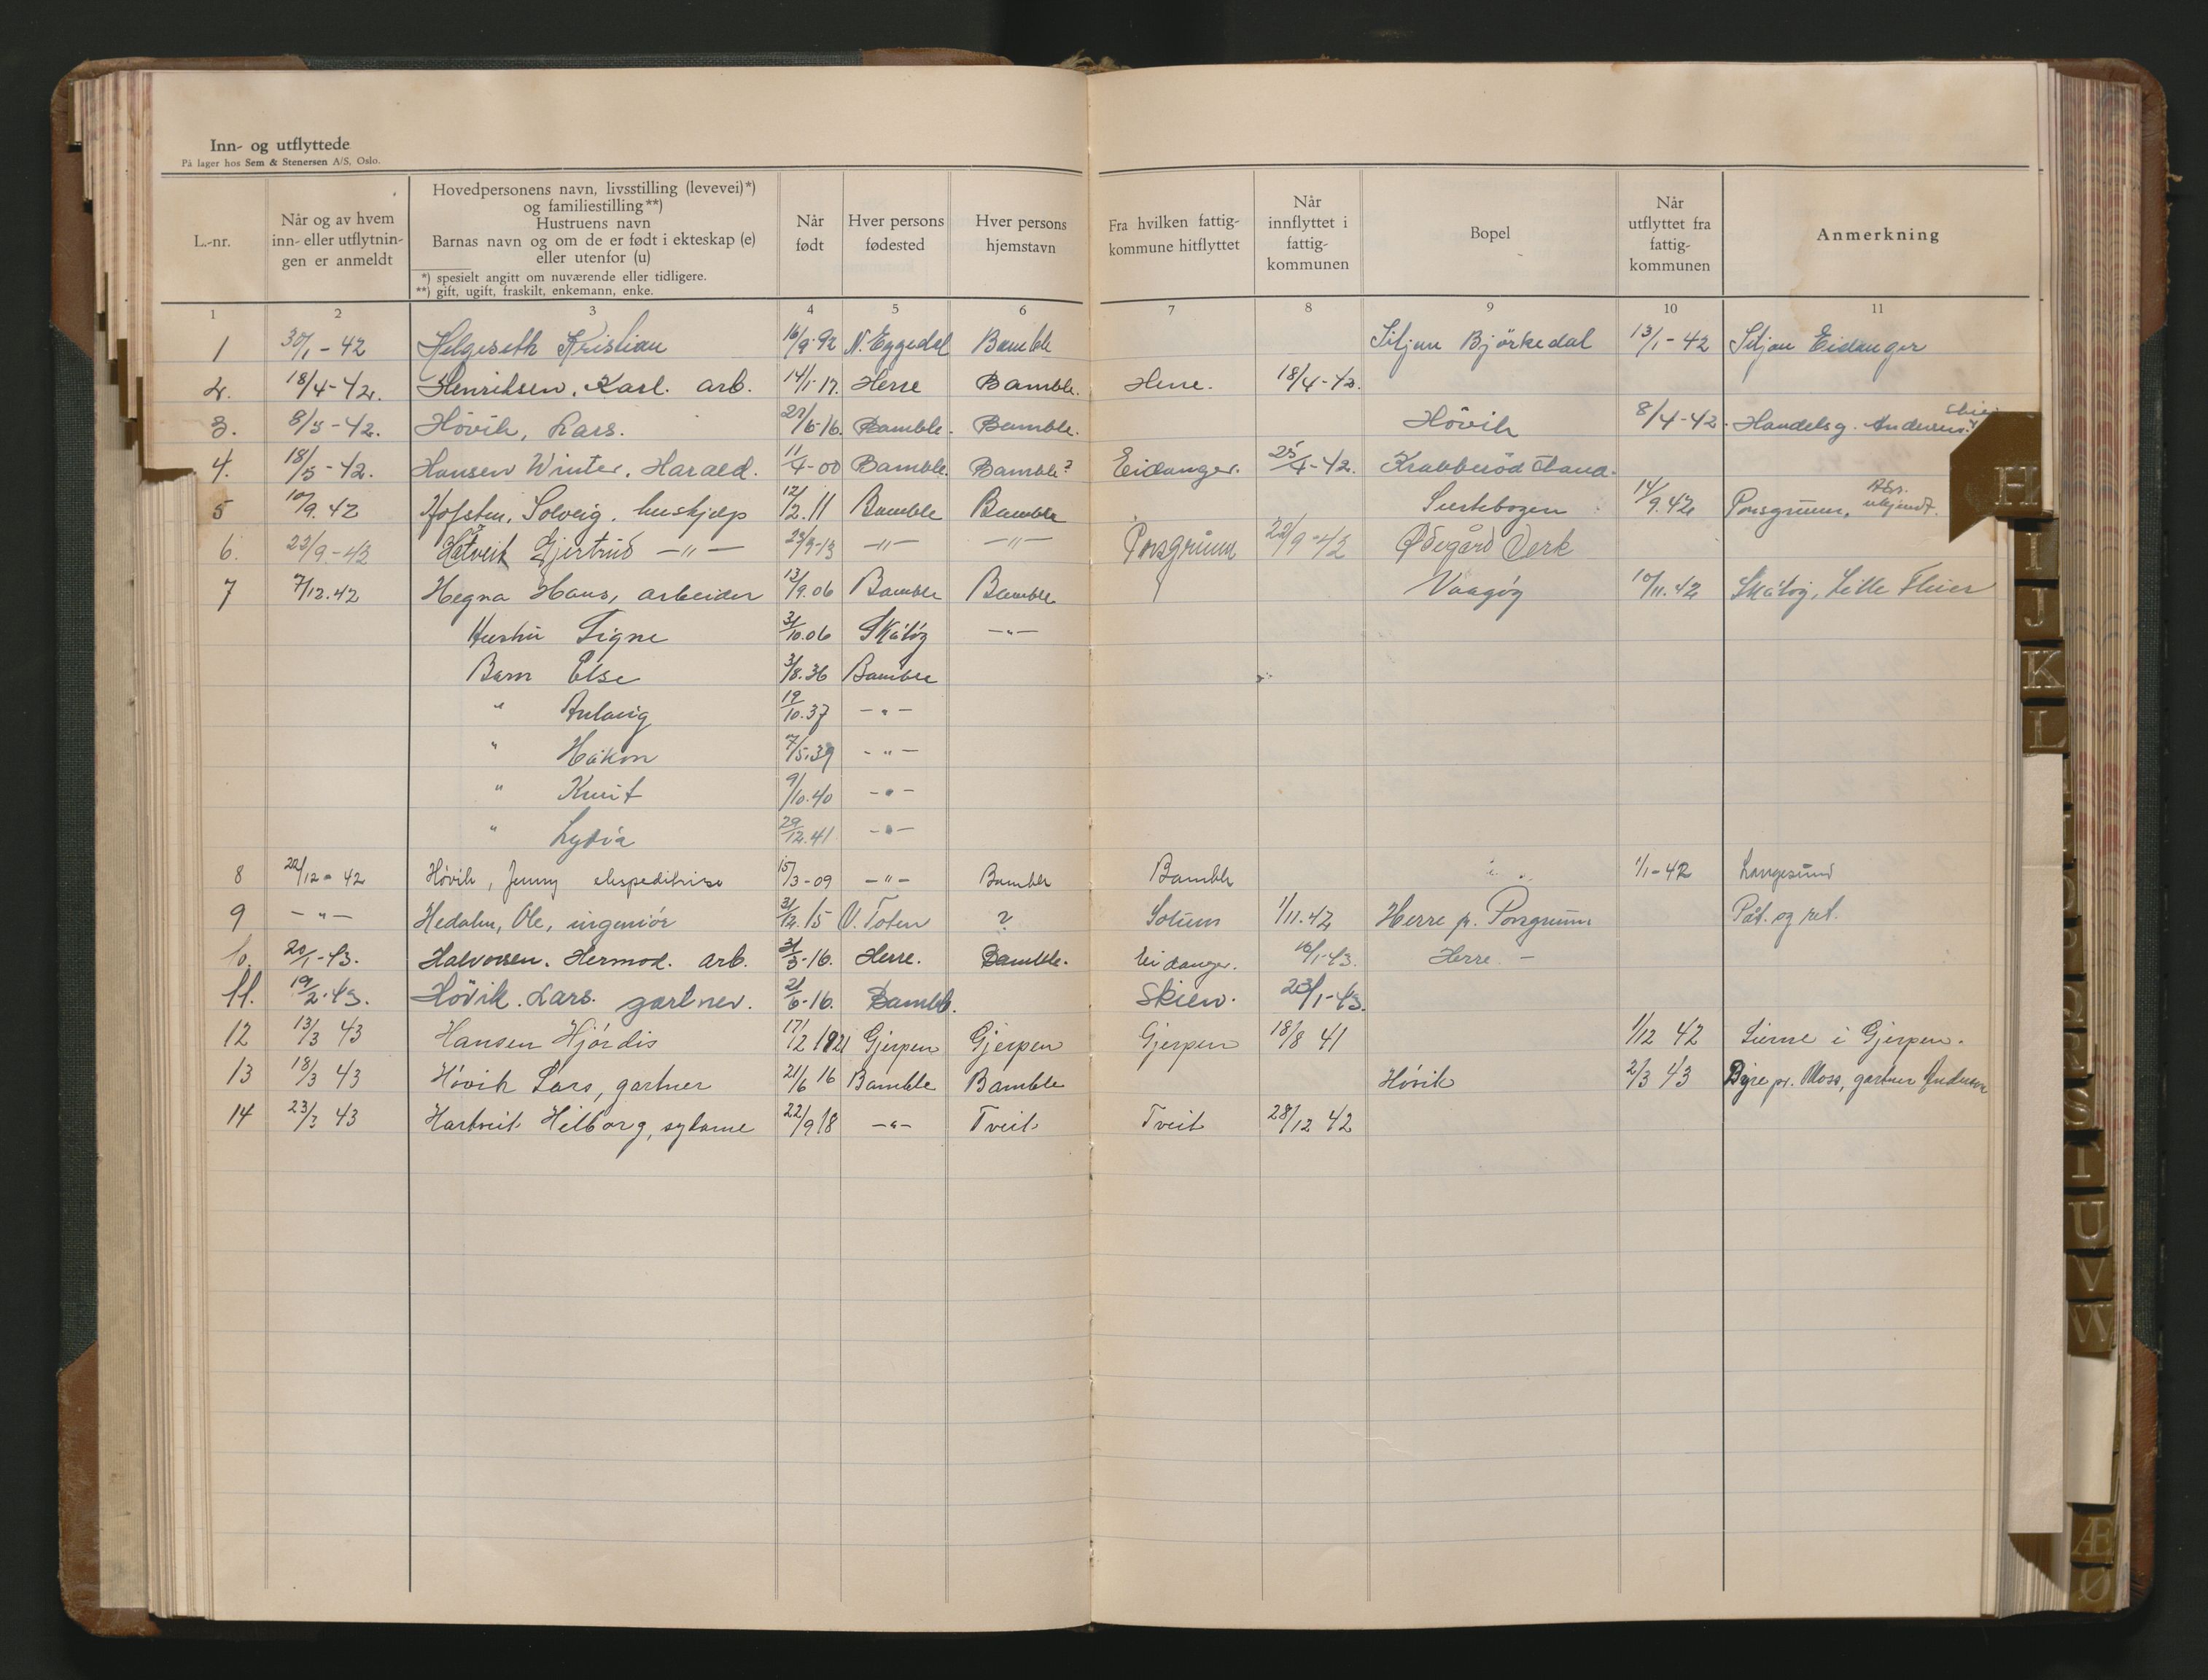 Inn- og utflyttede
På lager hos Sem & Stenersen A/S, Oslo.
L.-nr.
Når og av hvem
inn- eller utflytnin-
gen er anmeldt
Hovedpersonens navn, livsstilling (levevei)*)
og familiestilling**)
Hustruens navn
Barnas navn og om de er født i ekteskap (e)
eller utenfor (u)
*) spesielt angitt om nuværende eller tidligere.
**) gift, ugift, fraskilt, enkemann, enke.
Når
født
Hver persons
fødested
Hver persons
hjemstavn
Fra hvilken fattig-
kommune hitflyttet
Når
innflyttet i
fattig-
kommunen
Bopel
Når
utflyttet fra
fattig-
kommunen
Anmerkning
1 2 3 4 5 6 7 8 9 10 11
1 30/1-42 Helgeseth Kristian 16/9-92 N. Eggedal Bamble Siljan Björkedal 13/1-42 Siljan Eidanger
2. 18/4-42. Henriksen, Karl. arb. 14/1-17. Herre Bamble. Herre. 18/4-42.
3. 8/5-42. Hövik, Lars. 21/6-16. Bamble. Bamble. Hövik 8/4-42. Handelsg. Andersen
4. 18/5-42. Hansen Winter, Harald. 11/4-00 Bamble. Bamble? Eidanger. 25/4-42. Krabberöd
5 10/9.42 Hofsten, Solveig, huskjelp 12/2.11 Bamble Bamble 14/9.42 Porsgrunn, Adr. ukjendt.
6. 23/9-42 Hatveit Gjertrud -"- 23/9-13 -"- -"- Porsgrunn 22/9-42 Ødegård Verk
7 7/12.42 Hegna Hans, arbeider 13/9.06 Bamble Bamble Vaagøy 10/11.42 Skåtøy,
Hustru Signe 31/10.06 Skåtøy -"-
Barn Else 3/8.36 Bamble
" 19/10.37 -"-
" Håkon 7/5.39 -"-
" Knut 9/10.40 -"-
" Lydia 29/12.41 -"-
8 22/12-42 Høvik, Jenny ekspeditrise 15/3-09 -"- Bamble Bamble 1/1-42 Langesund
9 -"- Hedalen, Ole, ingeniør 31/12.15 V. Toten ? Solum 1/11.42 Herre p. Porsgrunn
10. 20/1-43. Halvorsen. Hermod. arb. 31/3-16. Herre. Bamble. Eidanger. 16/1-43. Herre. -
11. 19/2-43. Hövik. Lars. gartner. 21/6-16. Bamble. Skien. 23/1-43.
12 13/3 43 Hansen Hjördis 17/2 1921 Gjerpen Gjerpen Gjerpen 18/8 41 1/12 42 i Gjerpen.
13 18/3 43 Høvik Lars, gartner 21/6 16 Bamble Bamble Høvik 2/3 43 Dyre pr. Moss, gartner Andersen
14 23/3 43 Hartveit Hilborg, sydame 22/9 18 -"- Tveit Tveit 28/12 42
H
I
J
K
L
U
V
W
Æ
Ø